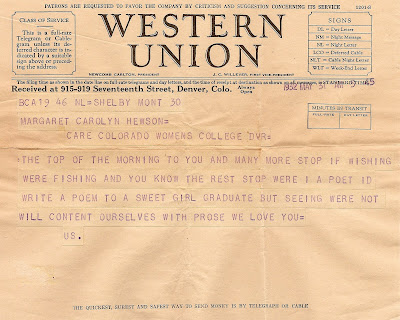 PATRONS ARE REQUESTED TO FAVOR THE COMPANY BY CRITICISM AND SUGGESTION CONCERNING ITS SERVICE
CLASS OF SERVICE
This is a full-rate Telegram or Cablegram unless its deferred character is indicated by a suitable sign above or preceding the address.
WESTERN
UNION
NEWCOMB CARLTON, PRESIDENT
J. C. WILLEVER, FIRST VICE-PRESIDENT
SIGNS
DL = Day Letter
NM = Night Message
NL = Night Letter
LCO = Deferred Cable
NLT = Cable Night Letter
WLT = Week-End Letter
Received at 915-919 Seventeenth Street, Denver, Colo.
Always Open
1932 MAY 31
MINUTES IN TRANSIT
FULL-RATE
DAY LETTER
BCA19 46 NL=SHELBY MONT 30
MARGARET CAROLYN HEWSON=
CARE COLORADO WOMENS COLLEGE DVR=
THE TOP OF THE MORNING TO YOU AND MANY MORE STOP IF WISHING
WERE FISHING AND YOU KNOW THE REST STOP WERE I A POET ID
WRITE A POEM TO A SWEET GIRL GRADUATE BUT SEEING WERE NOT
WILL CONTENT OURSELVES WITH PROSE WE LOVE YOU=
US.
THE QUICKEST, SUREST AND SAFEST WAY TO SEND MONEY IS BY TELEGRAPH OR CABLE